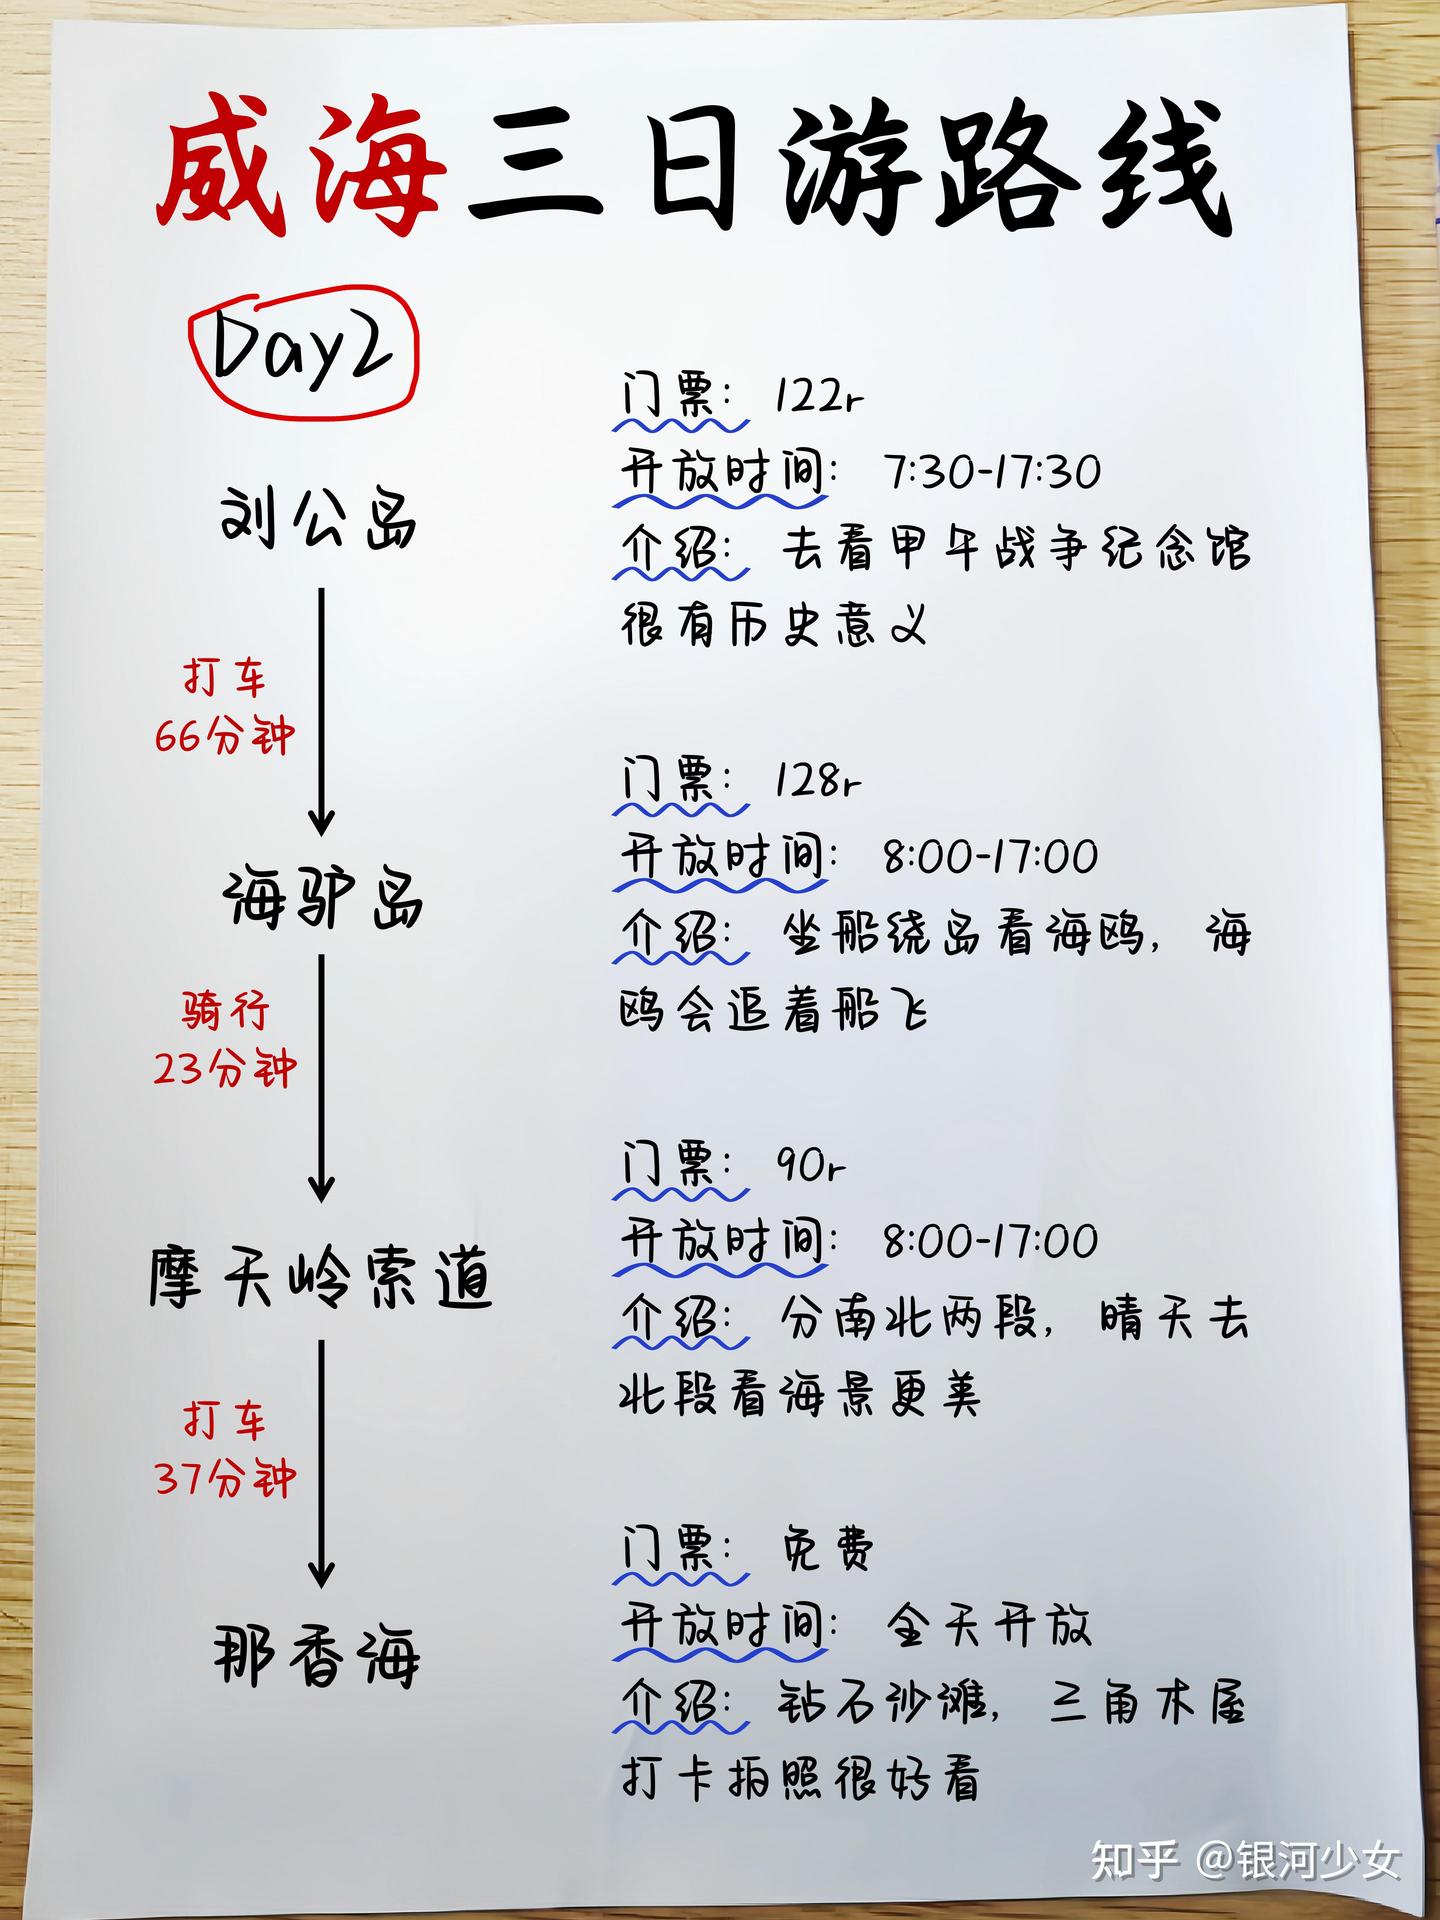 威海三日游路线
Day2
刘公岛
门票： 122r
开放时间： 7:30-17:30
介绍： 去看甲午战争纪念馆
很有历史意义
打车
66分钟
海驴岛
门票： 128r
开放时间： 8:00-17:00
介绍： 坐船绕岛看海鸥，海
鸥会追着船飞
骑行
23分钟
摩天岭索道
门票： 90r
开放时间： 8:00-17:00
介绍： 分南北两段，晴天去
北段看海景更美
打车
37分钟
那香海
门票： 免费
开放时间： 全天开放
介绍： 钻石沙滩，三角木屋
打卡拍照很好看
知乎 @银河少女